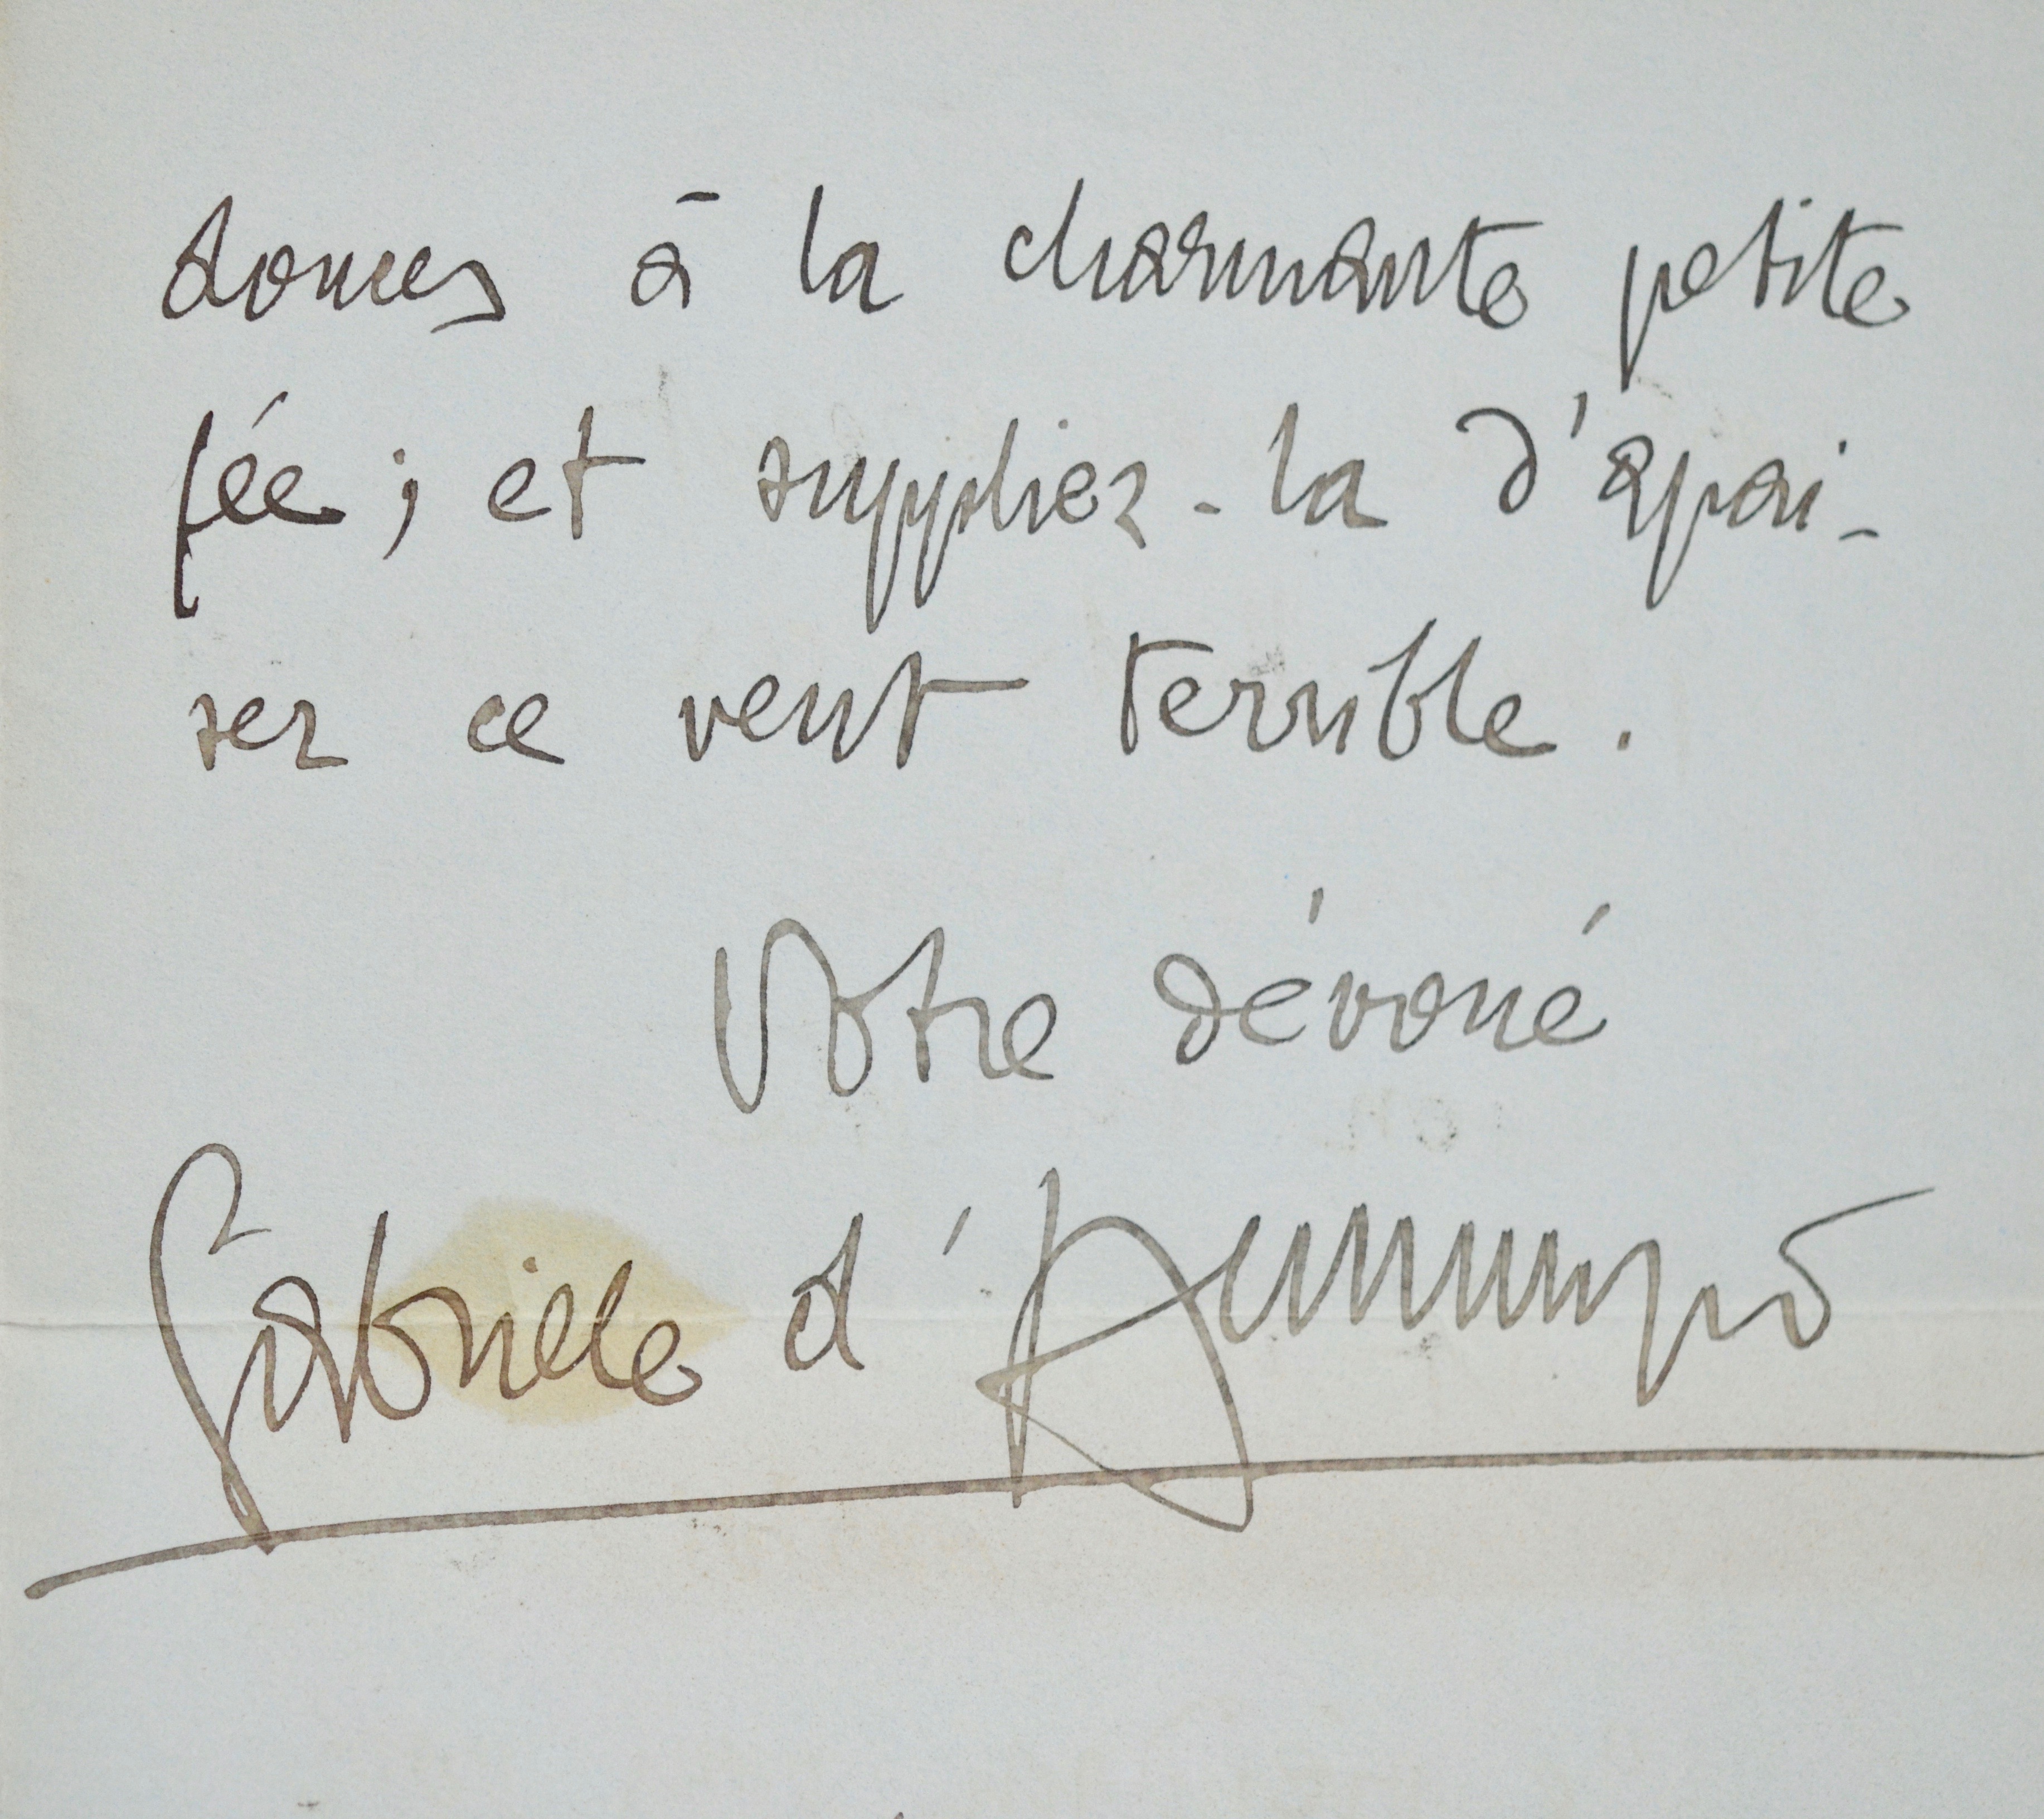 douces à la charmante petite
fée ; et suppliez-la d'apai-
ser ce vent terrible.
Votre dévoué
Gabriele d'Annunzio